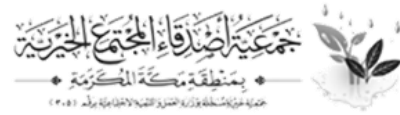 جمعية أصدقاء المجتمع الخيرية
بمنطقة مكة المكرمة
جمعية خيرية مسجلة بوزارة العمل والتنمية الاجتماعية برقم (٣٠٥)